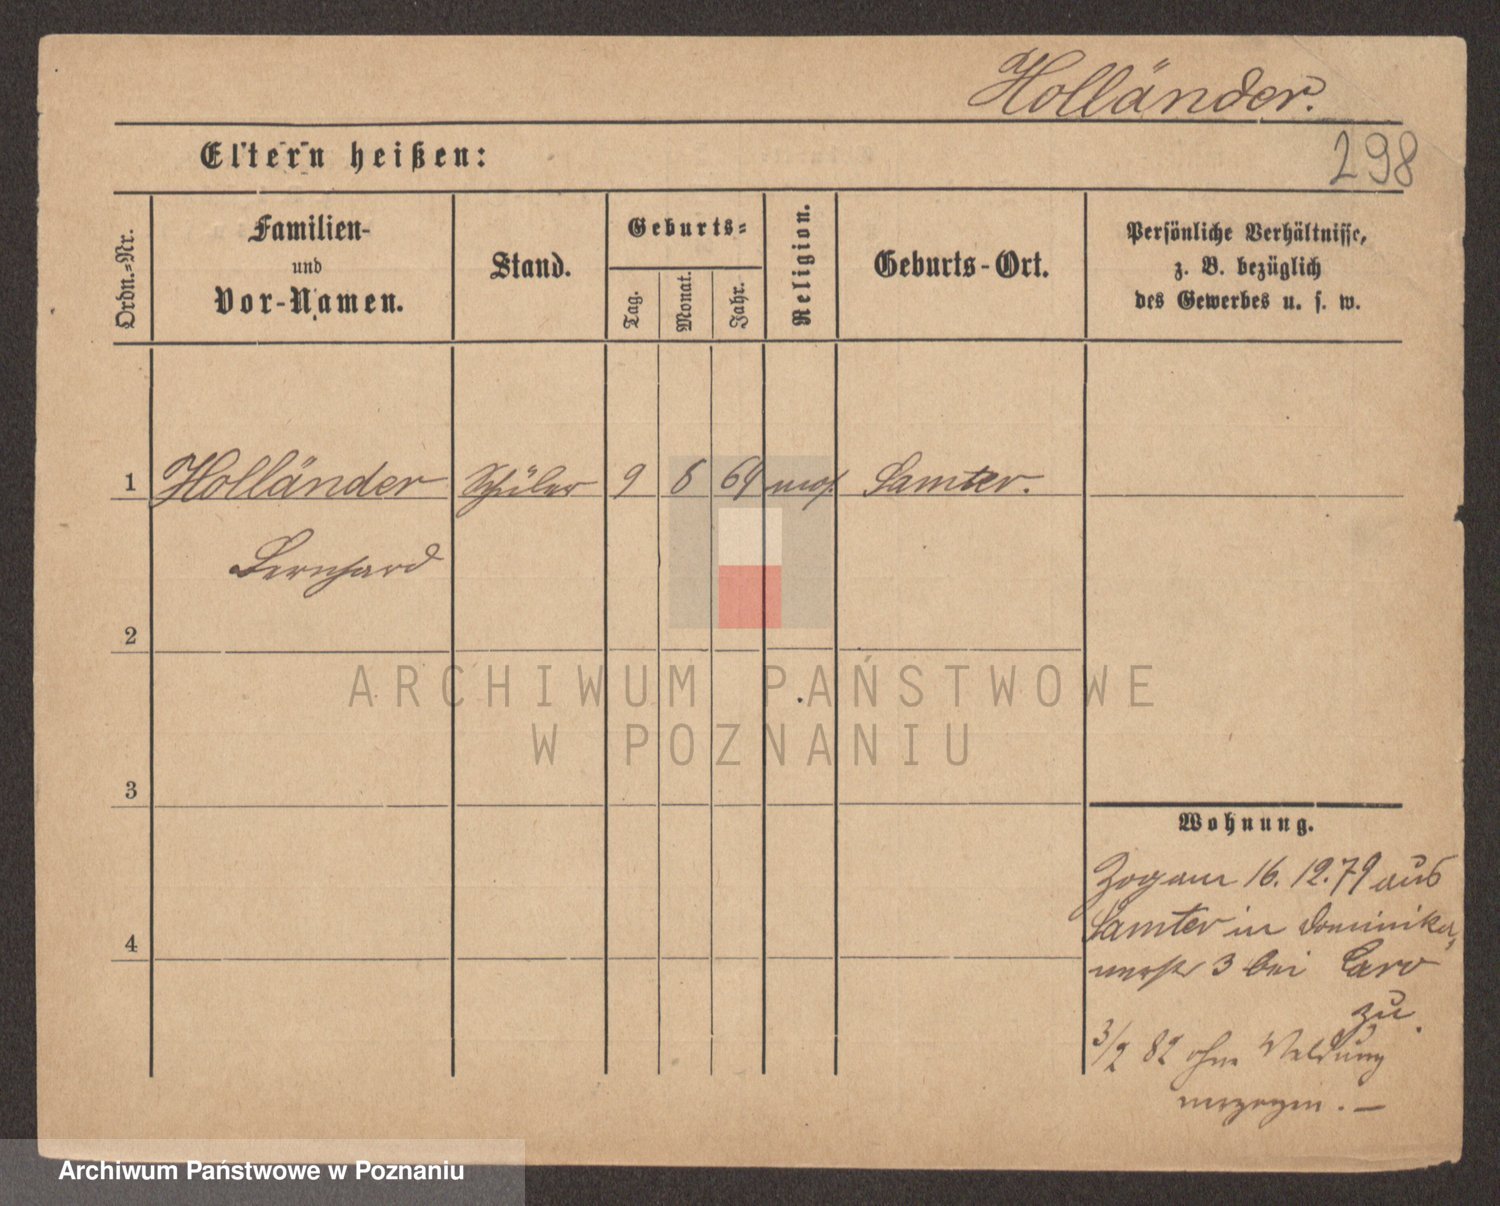 Holländer.
298
Eltern heißen:
Ordn.-Nr.
Familien-
und
Vor-Namen.
Stand.
Geburts-
Tag.
Monat.
Jahr.
Religion.
Geburts-Ort.
Persönliche Verhältnisse,
z. B. bezüglich
des Gewerbes u. s. w.
1 Holländer Schüler 9 8 69 mos. Samter.
Bernhard
2
ARCHIWUM PAŃSTWOWE
W POZNANIU
3
Wohnung.
Zog am 16.12.79 aus
Samter in Dominikaner
3 bei Caro
4
zu.
3/2 82 ohne Meldung
Archiwum Państwowe w Poznaniu